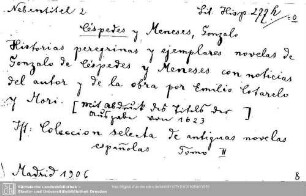 Nebentitel 2 Lit. Hisp. 299
Céspedes y Meneses, Gonzalo
Historias peregrinas y ejemplares novelas de
Gonzalo de Céspedes y Meneses con noticias
del autor y de la obra por Emilio Cotarelo
y Mori. [mit Abdruck des Titels der
Ausgabe von 1623
Jst: Coleccion selecta de antiguas novelas
españolas Tomo II
Madrid 1906
8